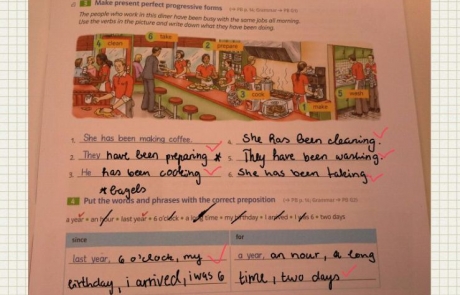 3 Make present perfect progressive forms
The people who work in this diner have been busy with the same jobs all morning.
Use the verbs in the picture and write down what they have been doing.
4 clean
6 take
2 prepare
3 cook
1 make
5 wash
1. She has been making coffee.
2. They have been preparing *
3. He has been cooking
* bagels
4. She has been cleaning.
5. They have been washing.
6. She has been taking.
4 Put the words and phrases with the correct preposition
a year • an hour • last year • 6 o'clock • a long time • my birthday • I arrived • I was 6 • two days
since
last year, 6 o'clock, my
birthday, i arrived, i was 6
for
a year, an hour, a long
time, two days